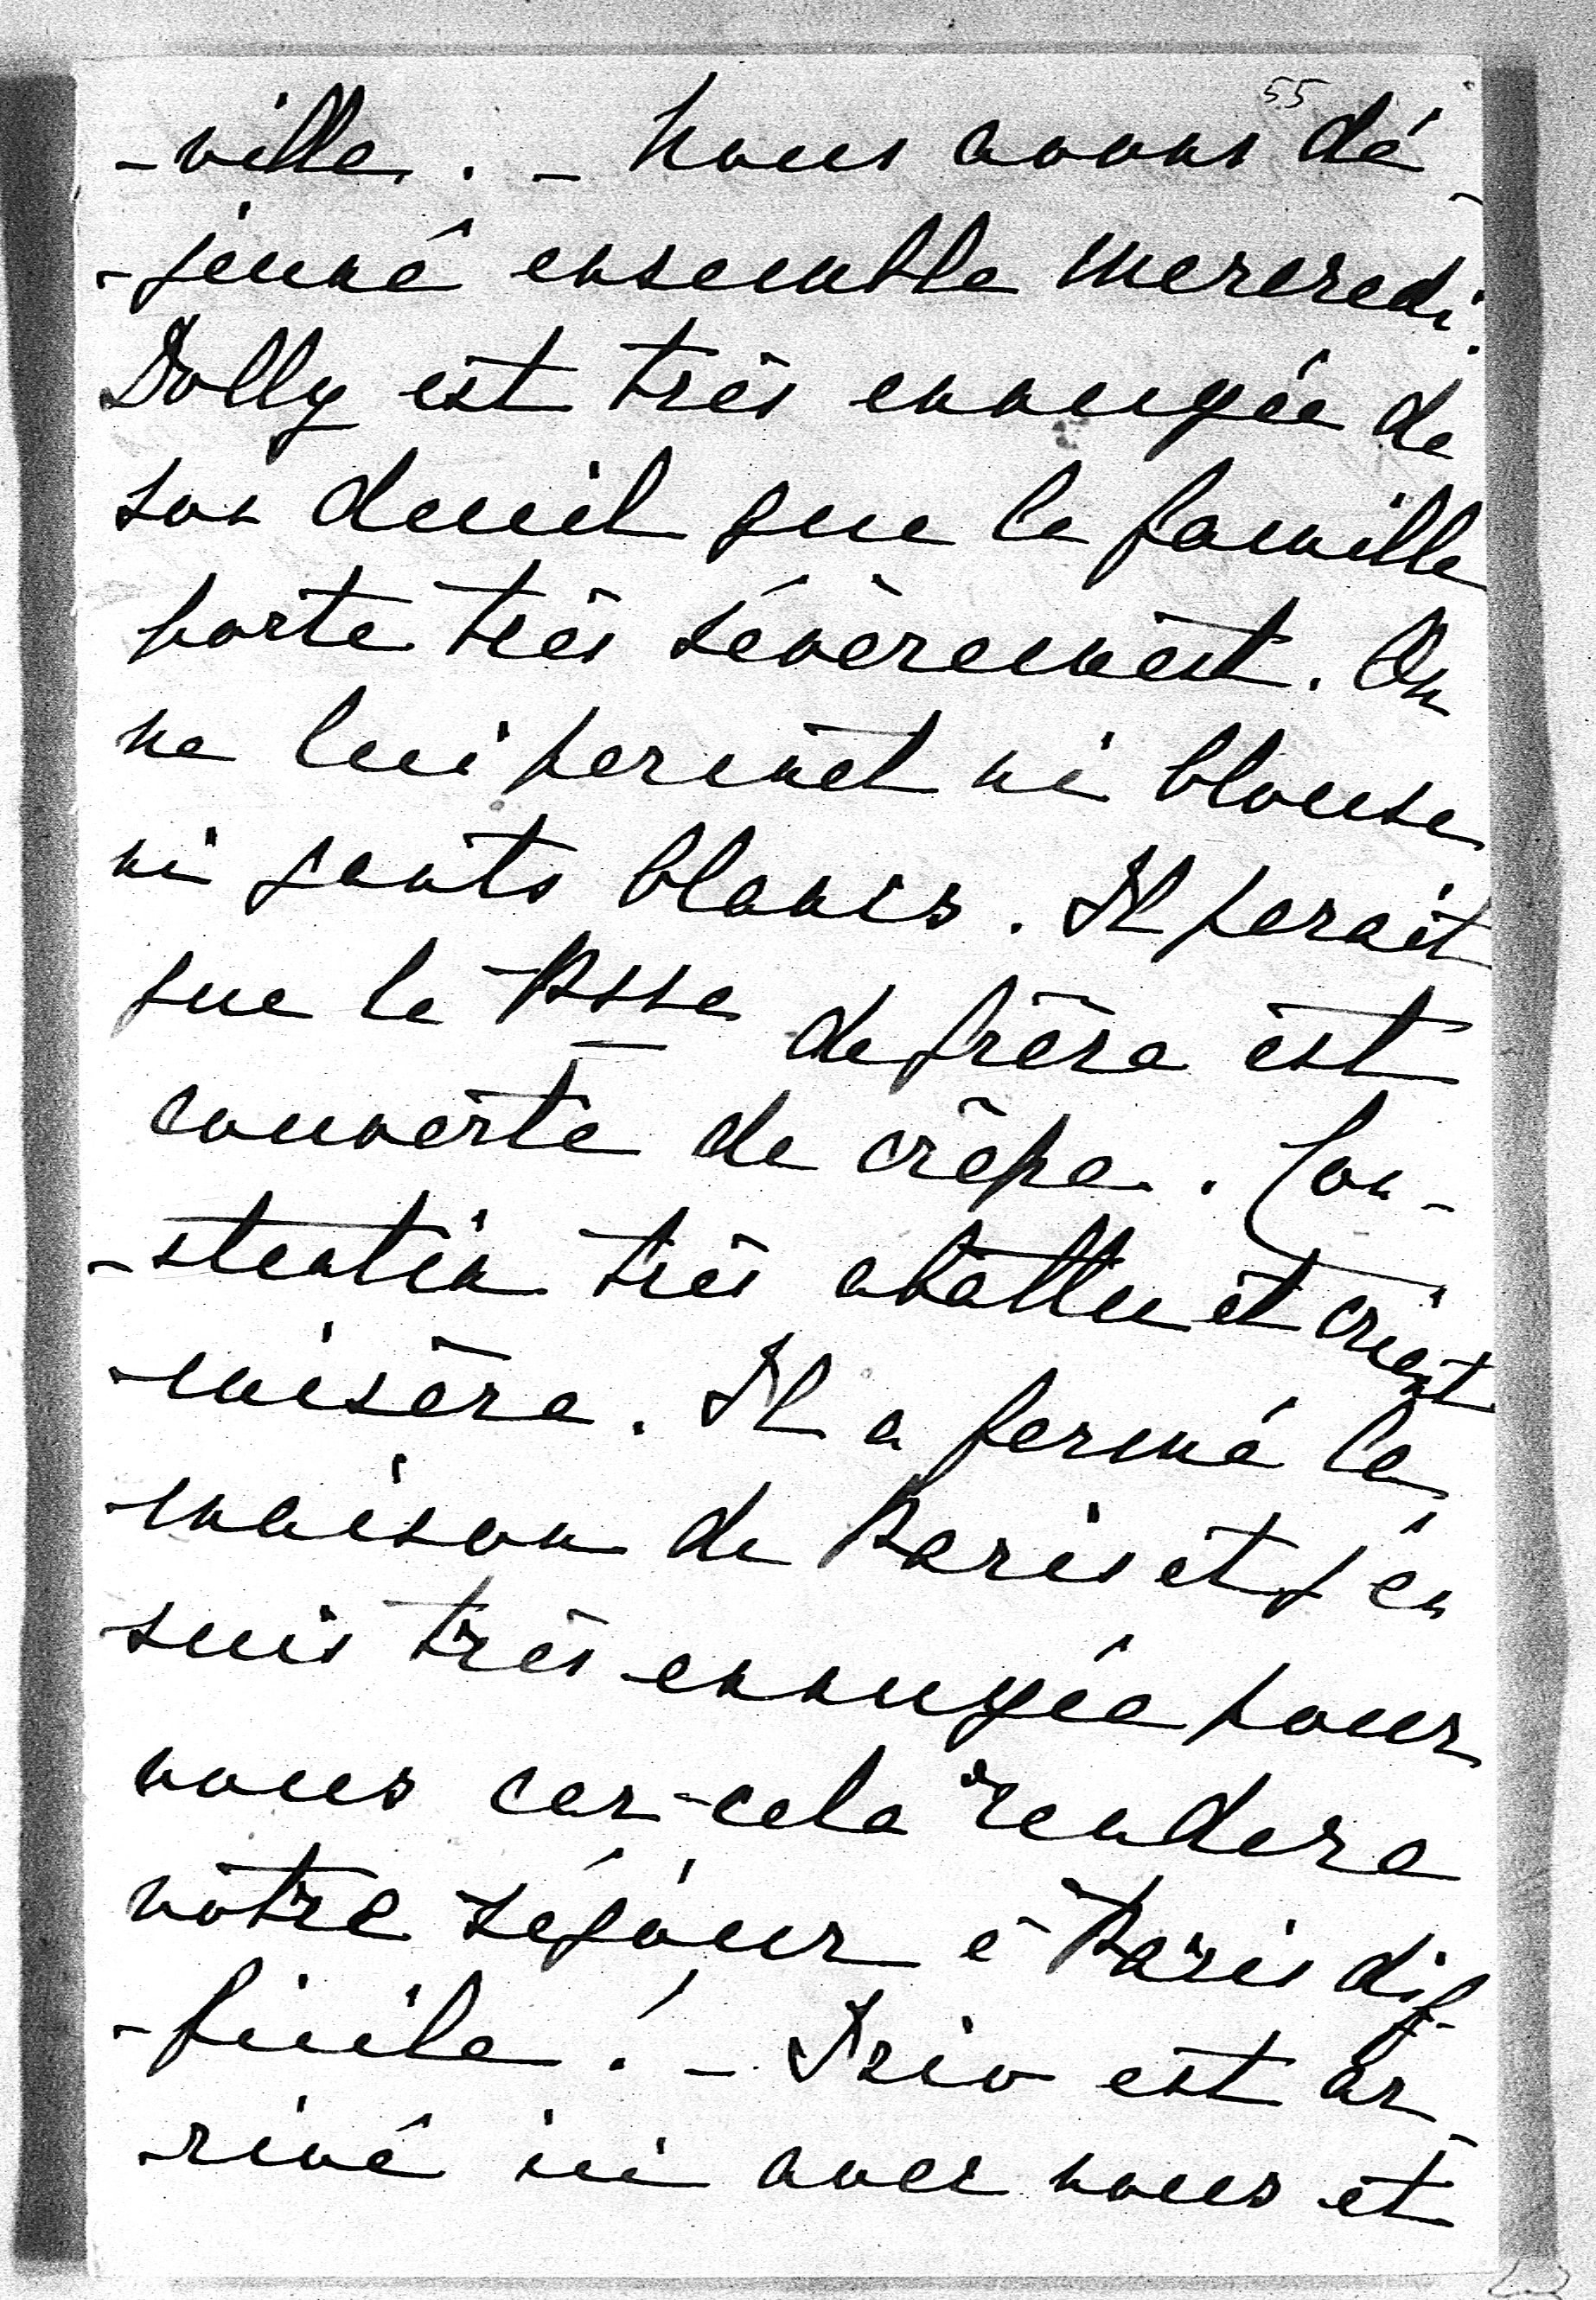 55
-ville. - Nous avons dé-
-jeuné ensemble mercredi.
Dolly est très ennuyée de
son deuil que la famille
porte très sévèrement. On
ne lui permet ni blouse
ni gants blancs. Il parait
que la Psse de frère est
couverte de crêpe. Con-
-stantin très abattu et criant
misère. Il a fermé la
maison de Paris et j'en
suis très ennuyée pour
nous car cela rendera
nôtre séjour à Paris dif-
-ficile! - est ar-
rivé ici avec nous et